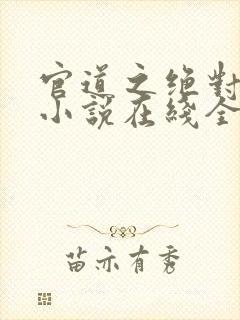 官道之绝對
小說在綫全
苗亦有秀